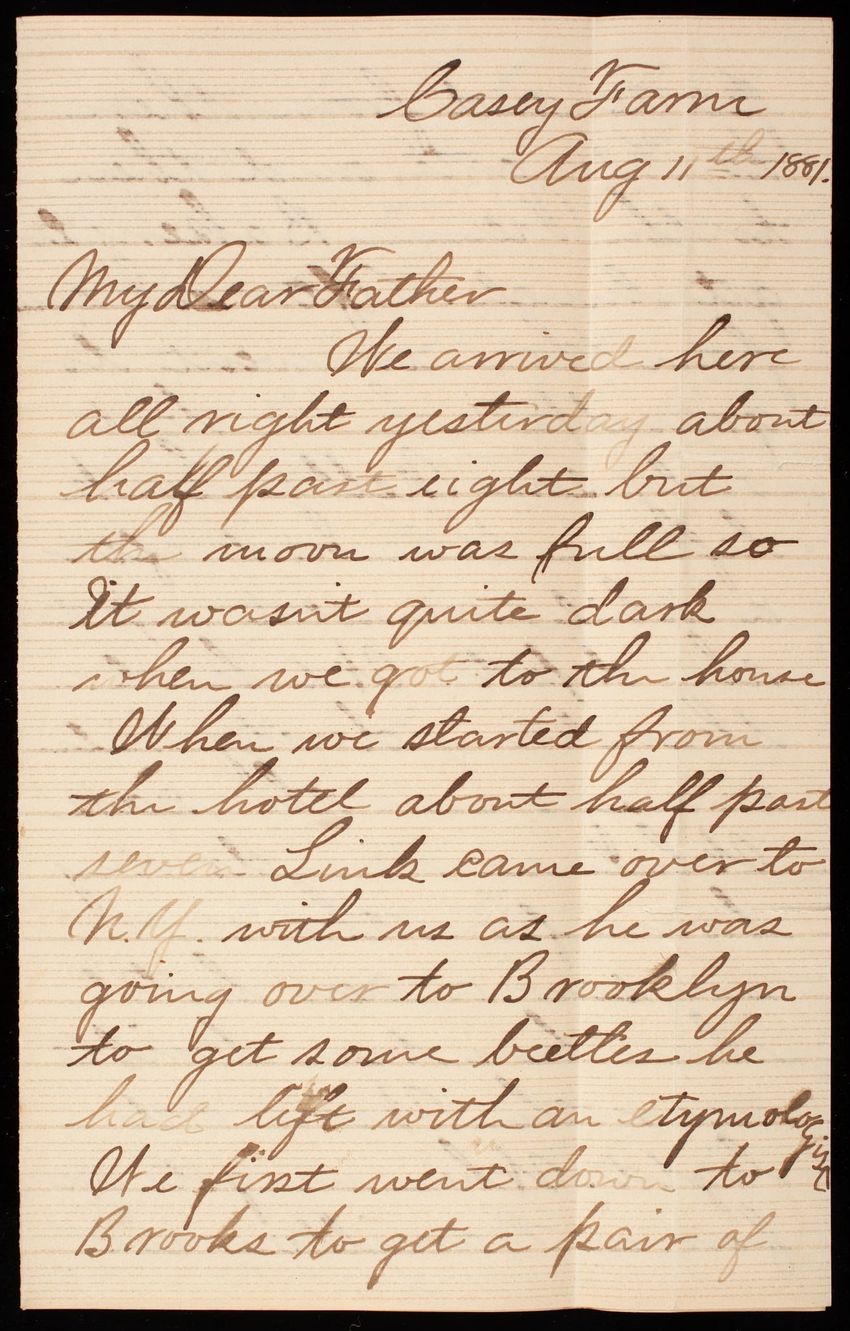 Casey Farm
Aug 11th 1881.
My Dear Father
We arrived here
all right yesterday about
half past eight but
the moon was full so
It wasn't quite dark
when we got to the house
When we started from
the hotel about half past
seven Link came over to
N.Y. with us as he was
going over to Brooklyn
to get some beetles he
had left with an etymologist
We first went down to
Brooks to get a pair of